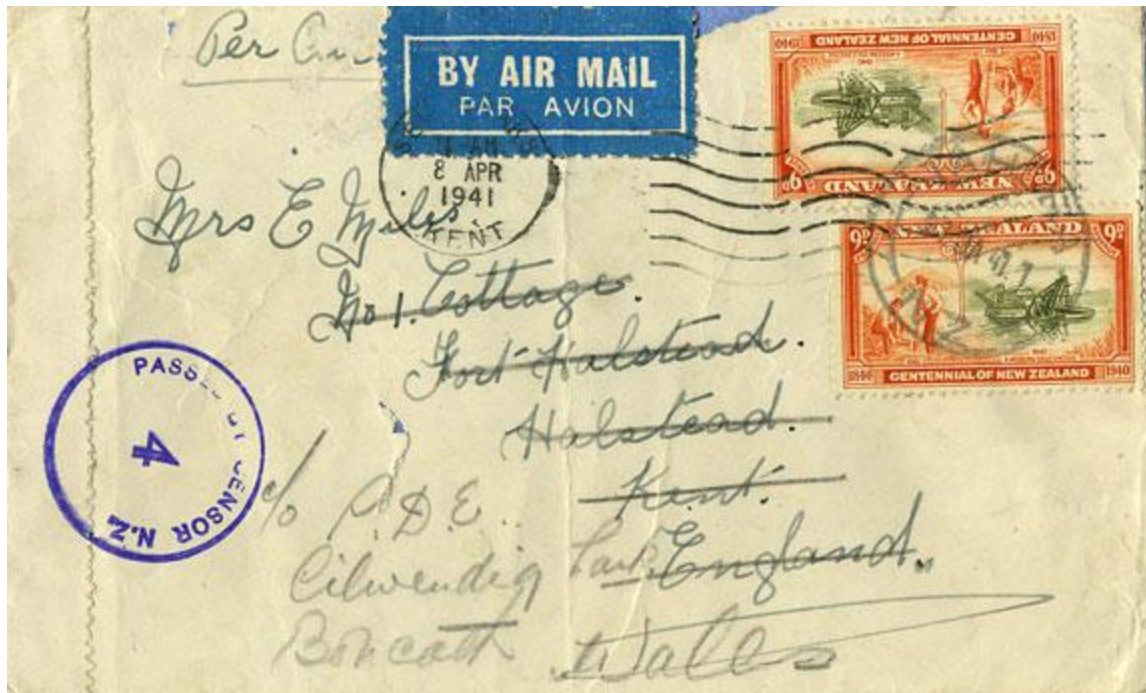 Per
BY AIR MAIL
PAR AVION
AM
8 APR
1941
KENT
1840 CENTENNIAL OF NEW ZEALAND 1940
9D
NEW ZEALAND
9D
9D NEW ZEALAND 9D
1840 CENTENNIAL OF NEW ZEALAND 1940
Mrs E Miles,
No 1. Cottage.
Fort Halstead.
Halstead.
Kent.
England.
PASSED BY CENSOR N.Z.
4
c/o P.D.E.
Cilwendig Park
Boncath
Wales